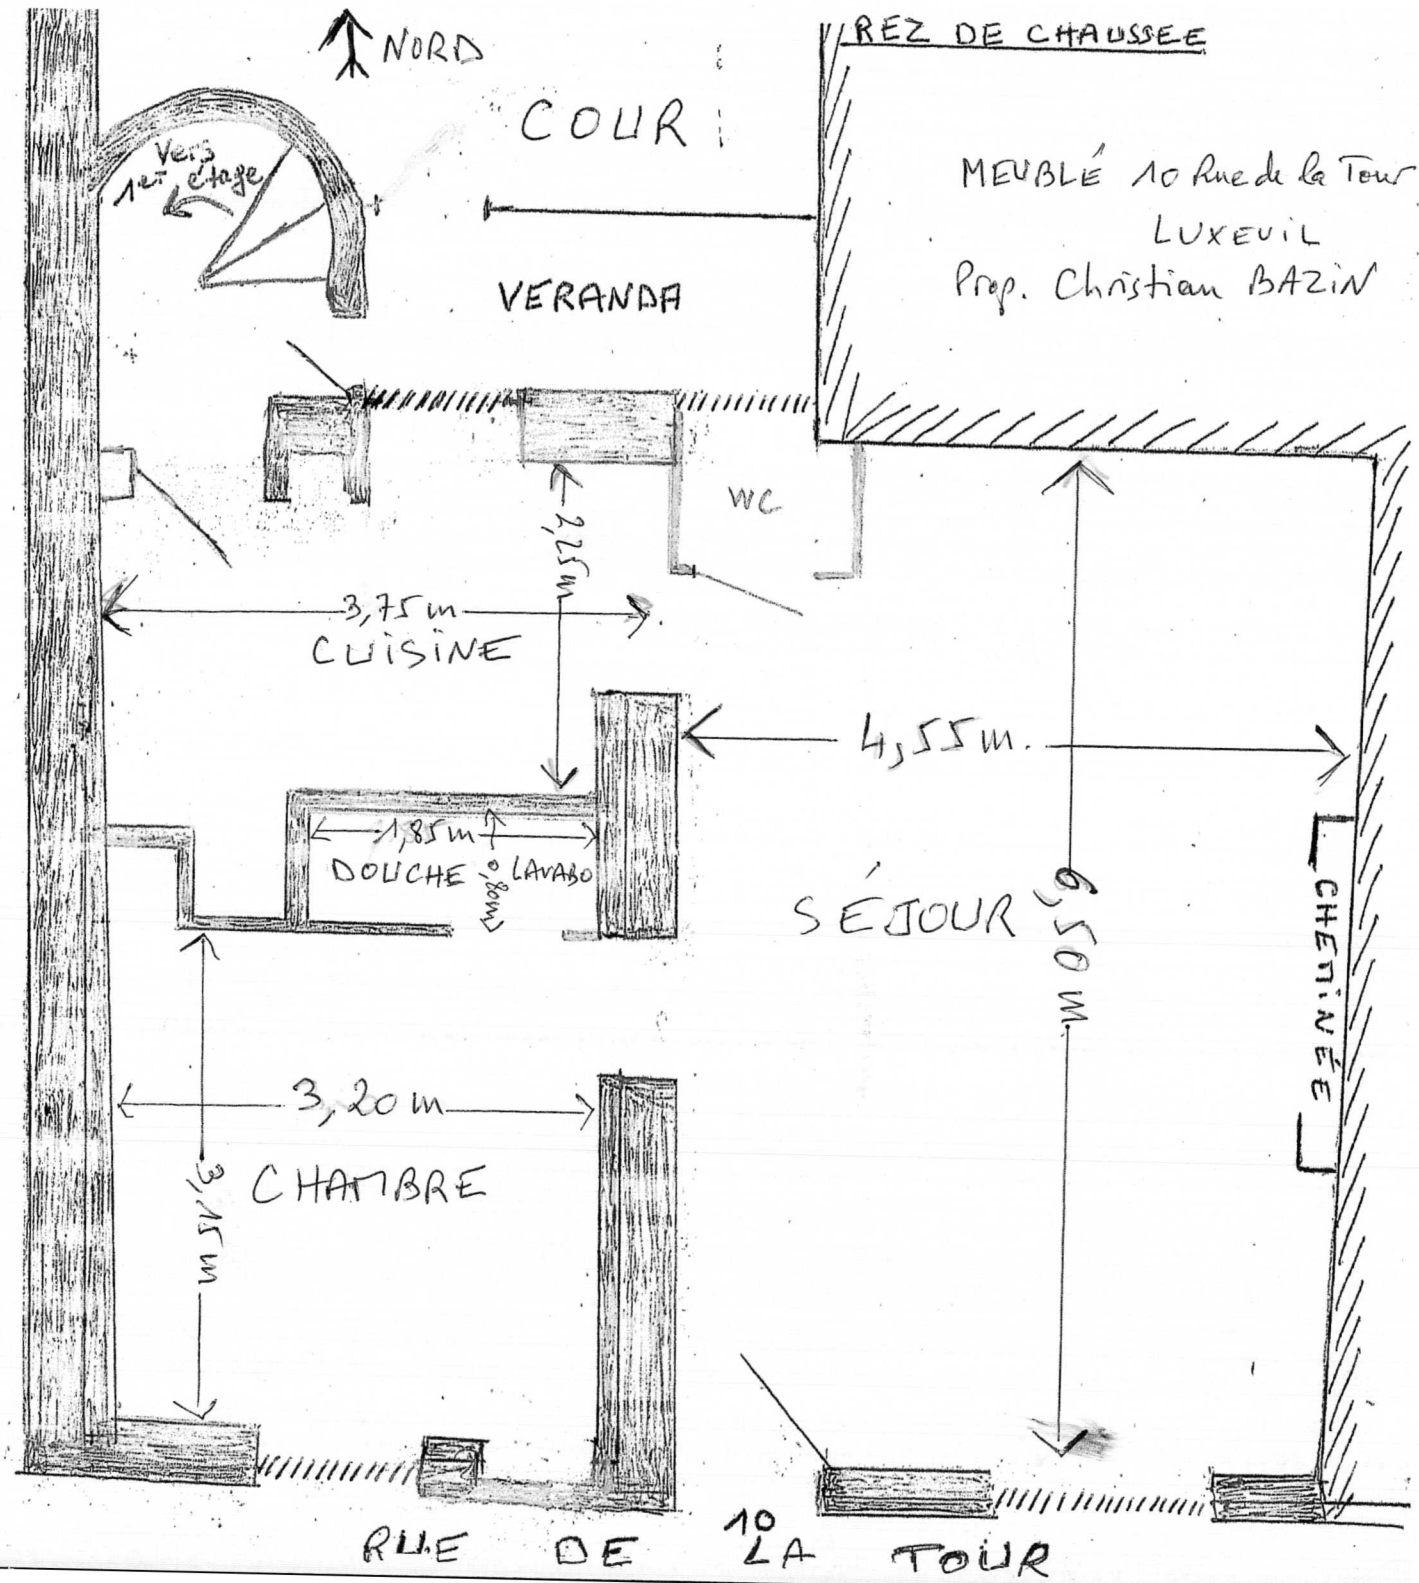 REZ DE CHAUSSEE
NORD
COUR
Vers
1er étage
MEUBLÉ 10 Rue de la Tour
LUXEUIL
Prop. Christian BAZIN
VERANDA
WC
2,25m
3,75m
CUISINE
4,55m.
1,85m
DOUCHE
0,80m
LAVABO
SÉJOUR
6,50m
CHEMINÉE
3,20m
3,15m
CHAMBRE
10
RUE DE LA TOUR